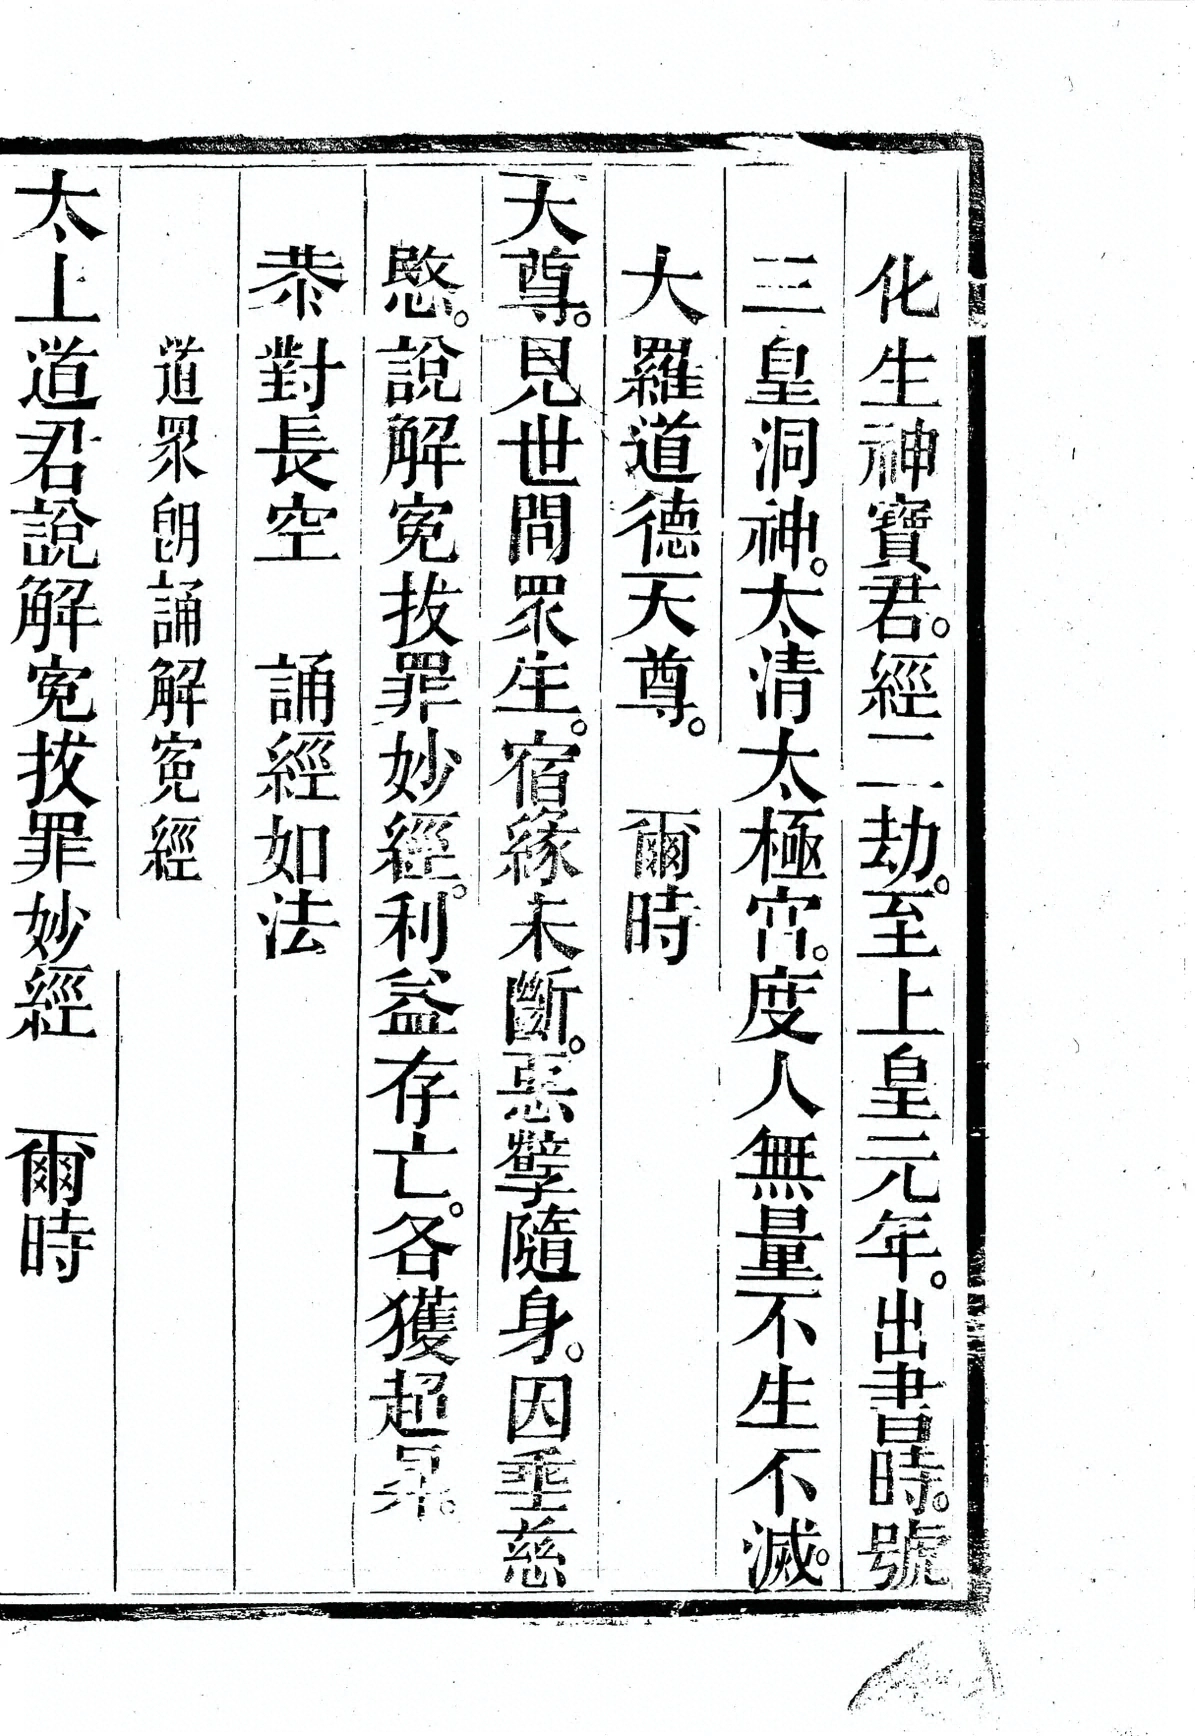 化生神寶君。經二劫。至上皇元年。出書時。號
三皇洞神。太清太極宮。度人無量不生不滅。
大羅道德天尊。　爾時
天尊。見世間眾生。宿緣未斷。惡孽隨身。因垂慈
愍。說解冤拔罪妙經。利益存亡。各獲超昇。
恭對長空　誦經如法
道眾朗誦解冤經
太上道君說解冤拔罪妙經　爾時